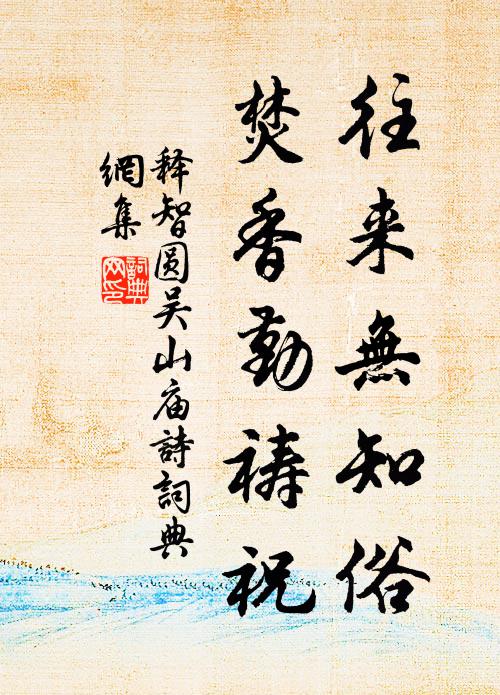 往来無知俗
焚香勤禱祝
释智圆吴山庙詩詞典
網集
詞典
网印